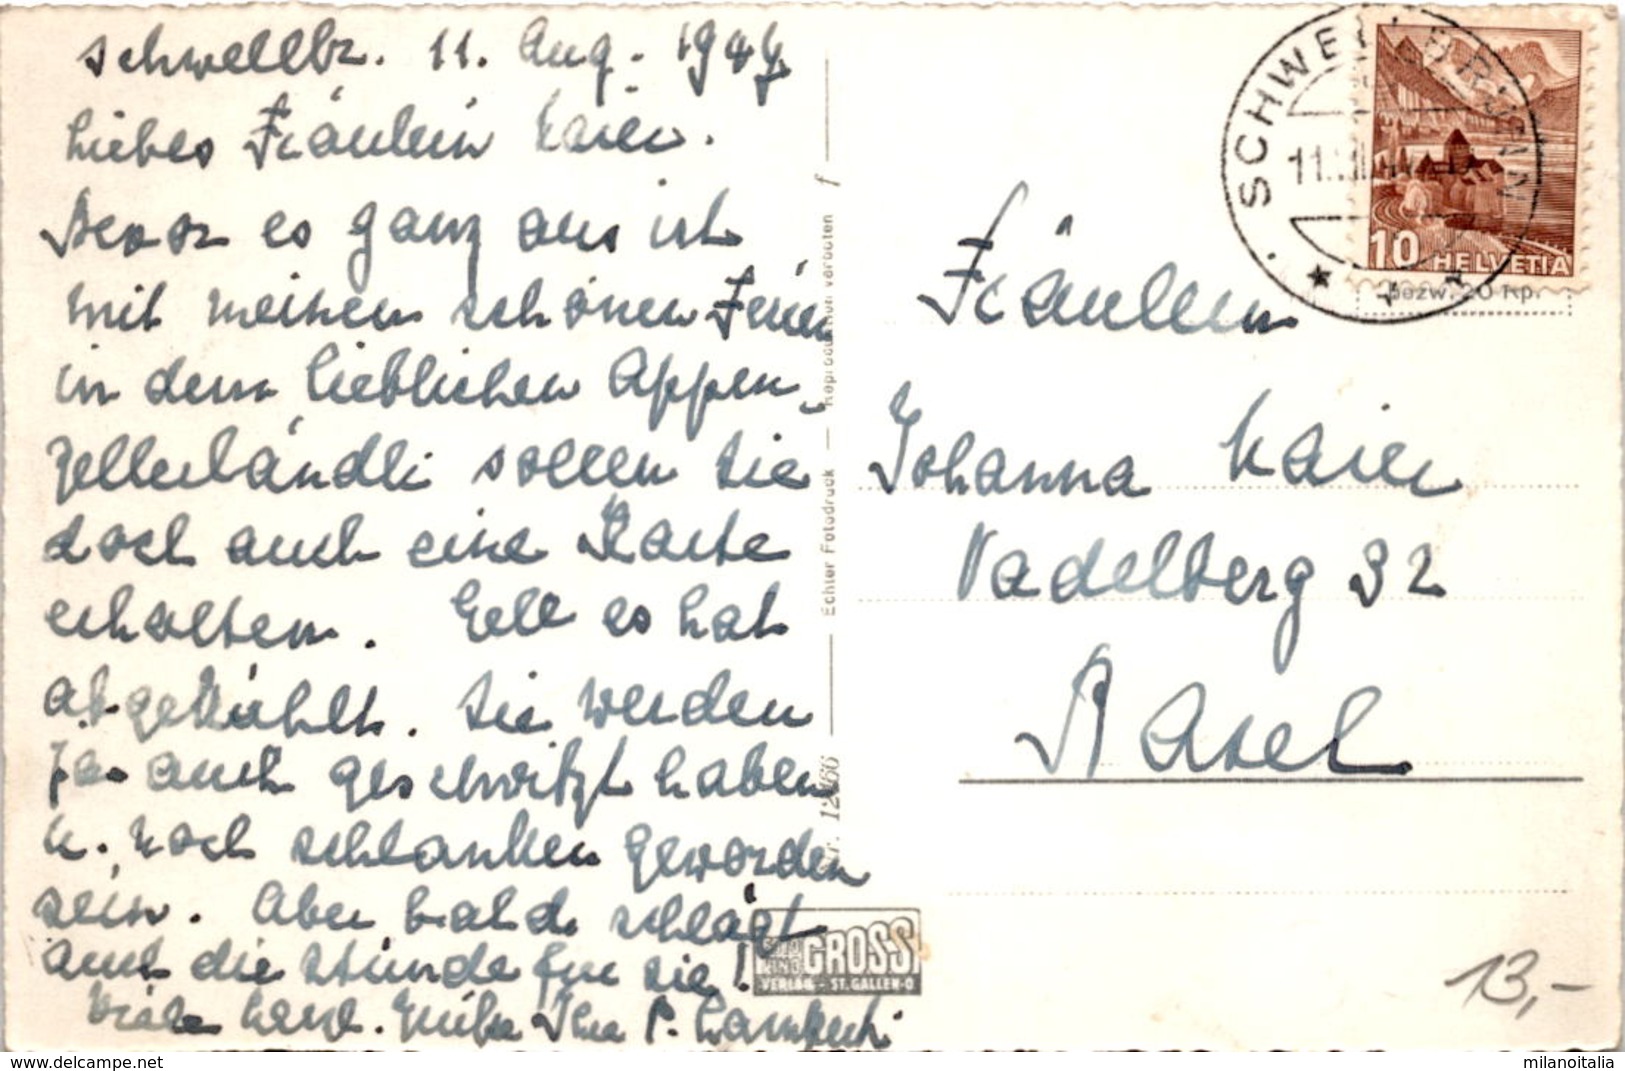 Schwellbr. 11. Aug. 1947
Liebes Fräulein Kaier.
Bevor es ganz aus ist
mit meinen schönen Ferien
in dem lieblichen Appen-
zellerländli sollen Sie
doch auch eine Karte
erhalten. Gell es hat
abgekühlt. Sie werden
ja auch geschwitzt haben
u. noch schlanker geworden
sein. Aber bald schlägt
auch die Stunde für Sie!
Viele herzl. Grüsse Ihr P.
Nr. 12466
Echter Fotodruck — Reproduktion verboten f
FOTO
GROSS
VERLAG - ST. GALLEN-O
SCHWELLBRUNN
11.VIII.47
10 HELVETIA
bezw. 20 Rp.
Fräulein
Johanna Kaier
Nadelberg 32
Basel
13,-
milanoitalia